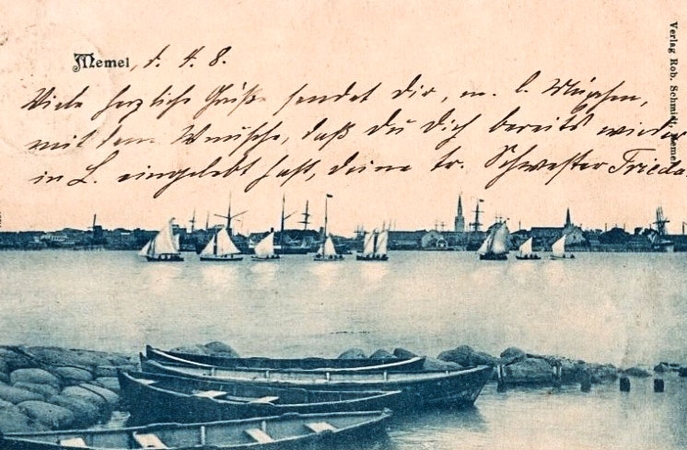 Memel, d. 4. 8.
Viele herzliche Grüße sendet Dir, m. l.
mit dem Wunsche, daß Du Dich bereits wieder
in L. eingelebt hast, Deine tr. Schwester Frieda.
Verlag Rob. Schmidt, Memel